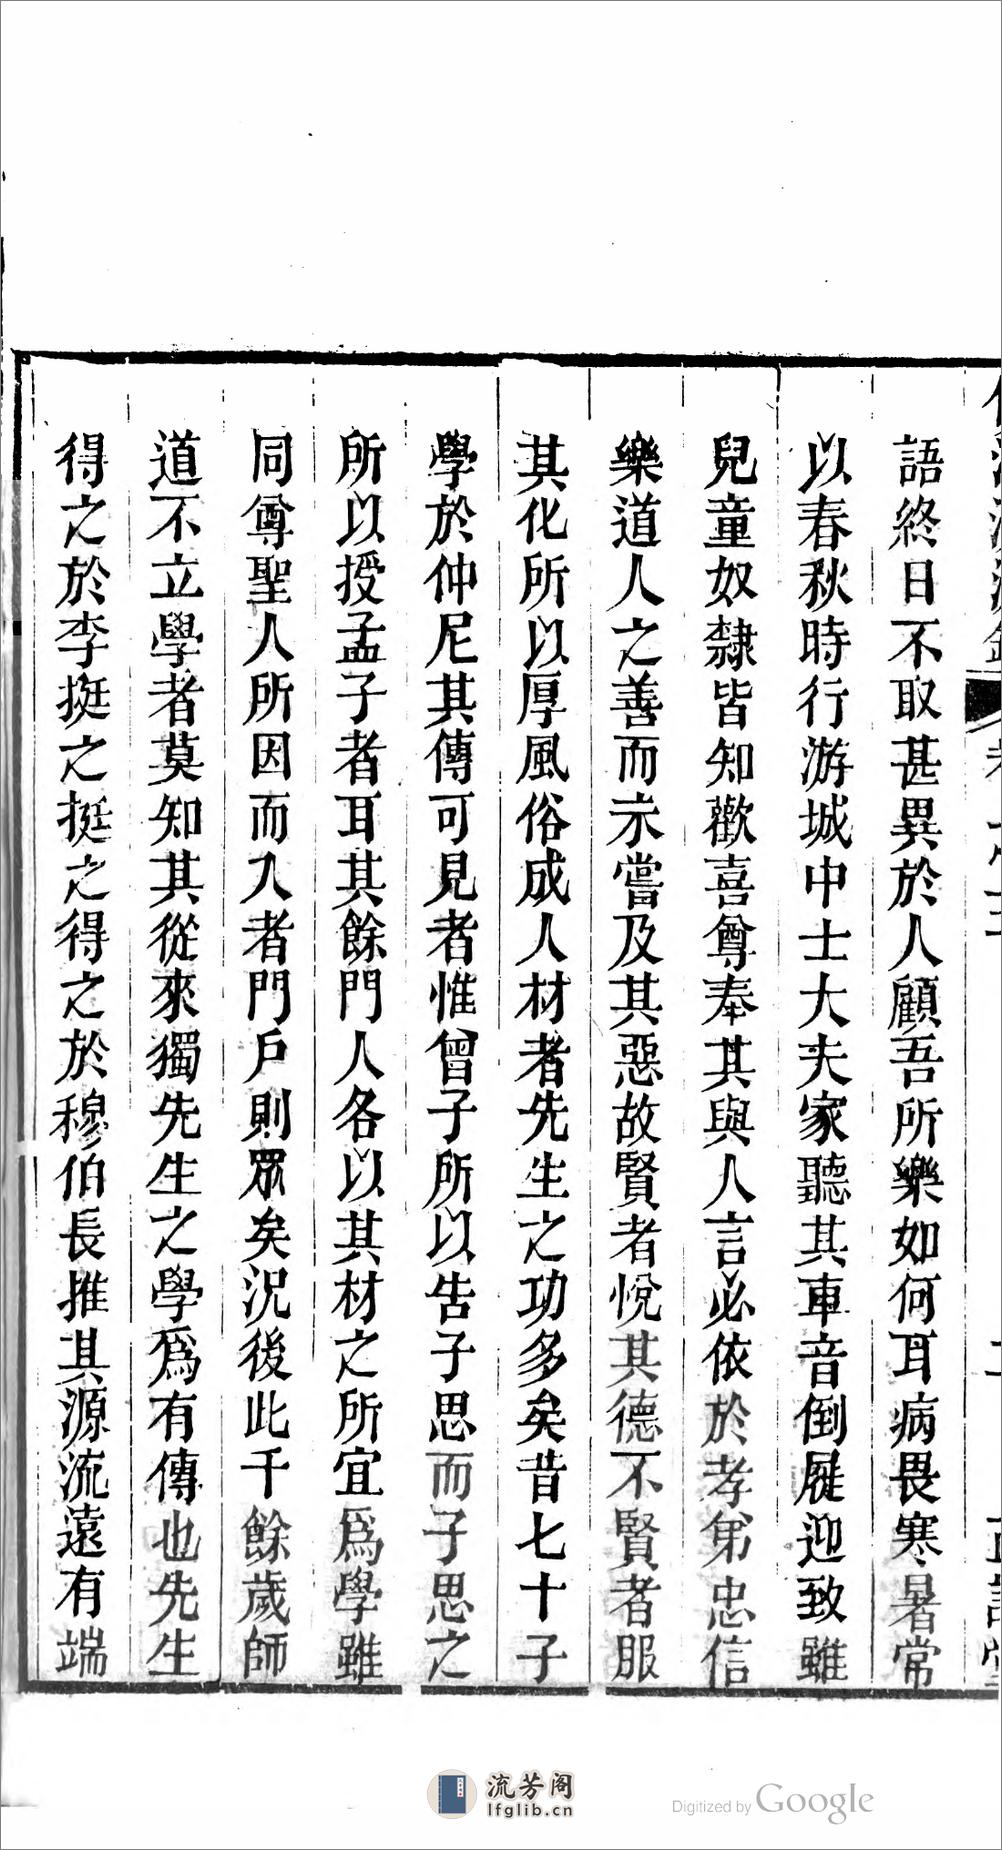 語終日不取甚異於人顧吾所樂如何耳病畏寒暑常
以春秋時行游城中士大夫家聽其車音倒屣迎致雖
兒童奴隸皆知歡喜尊奉其與人言必依於孝弟忠信
樂道人之善而未嘗及其惡故賢者悅其德不賢者服
其化所以厚風俗成人材者先生之功多矣昔七十子
學於仲尼其傳可見者惟曾子所以告子思而子思之
所以授孟子者耳其餘門人各以其材之所宜爲學雖
同尊聖人所因而入者門戶則眾矣況後此千餘歲師
道不立學者莫知其從來獨先生之學爲有傳也先生
得之於李挺之挺之得之於穆伯長推其源流遠有端
流芳阁
lfglib.cn
Digitized by Google